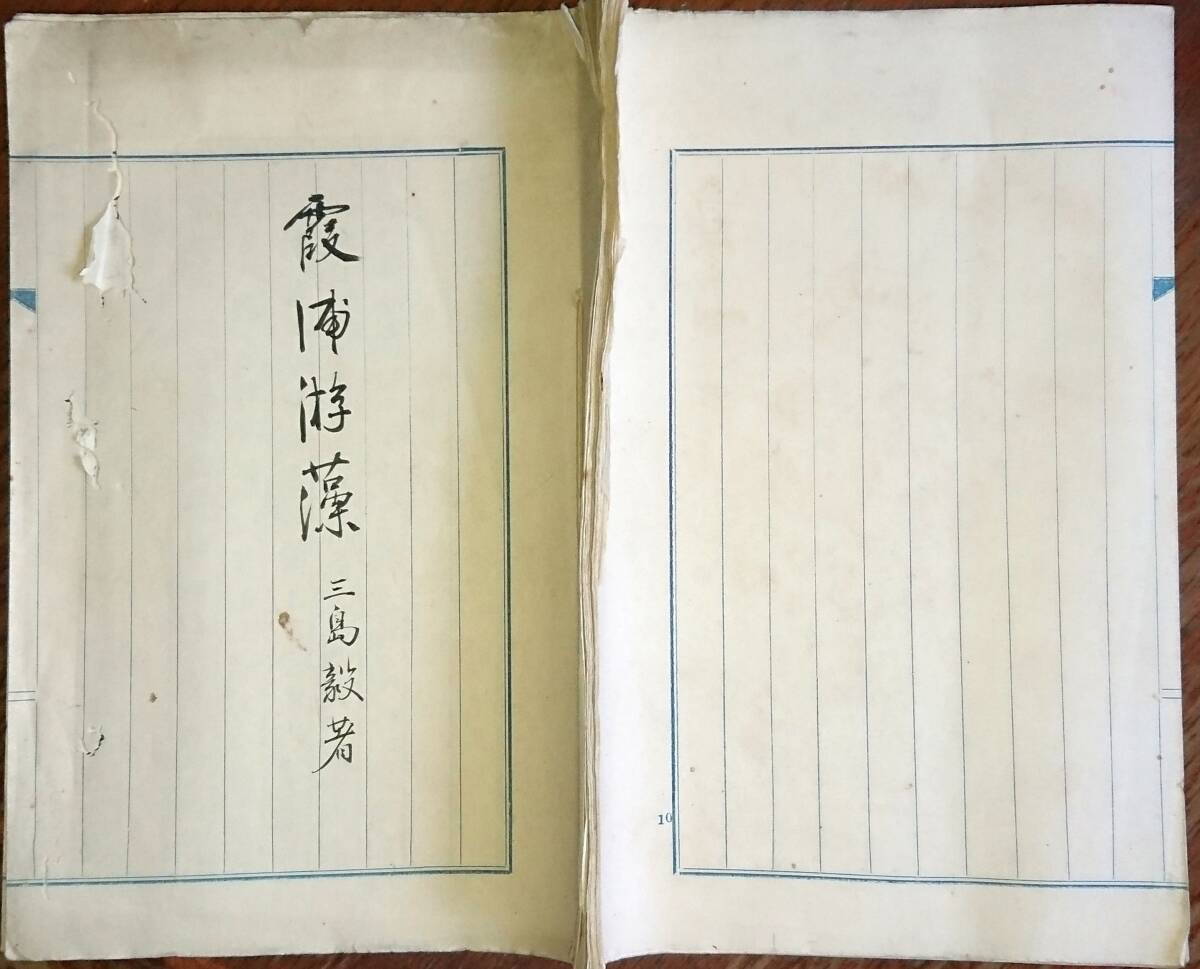 霞浦游藻
三島毅著
10